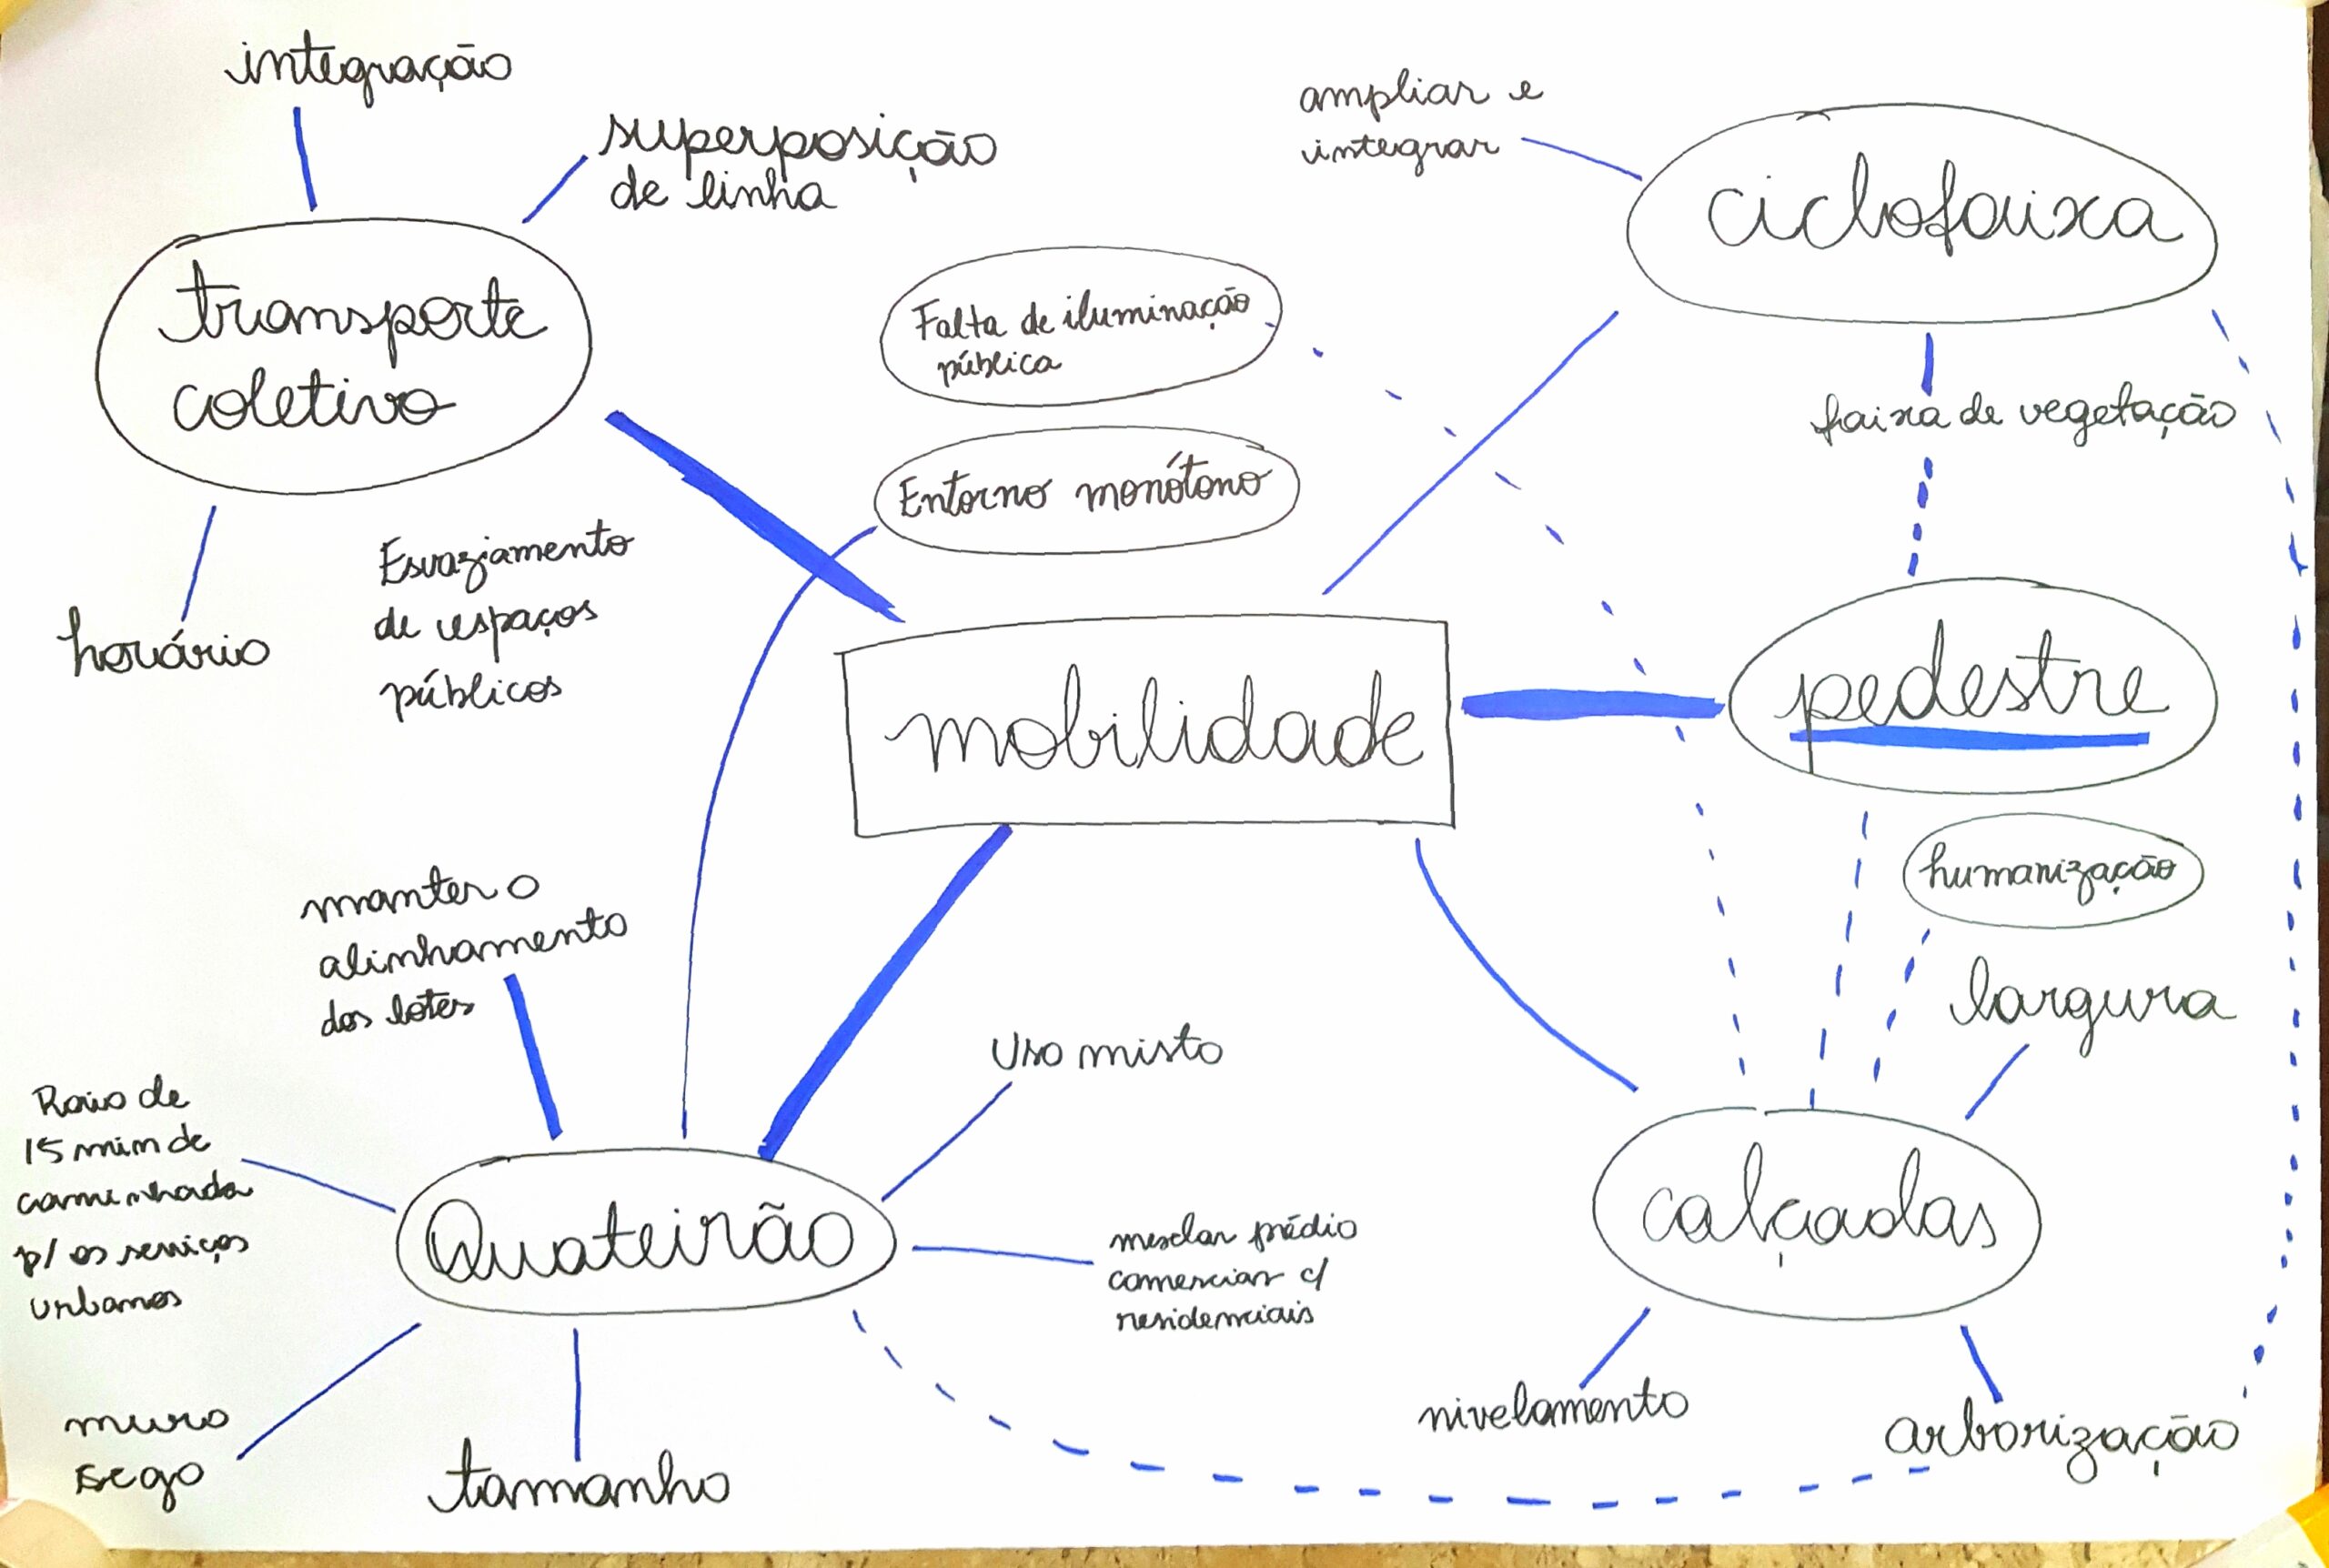 integração
superposição
de linha
transporte
coletivo
horário
Esvaziamento
de espaços
públicos
Falta de iluminação
pública
Entorno monótono
ampliar e
integrar
ciclofaixa
faixa de vegetação
mobilidade
pedestre
humanização
largura
calçadas
nivelamento
arborização
manter o
alinhamento
dos lotes
Raio de
15 min de
caminhada
p/ os serviços
urbanos
Quateirão
Uso misto
mesclar prédio
comerciais c/
residenciais
muro
sego
tamanho